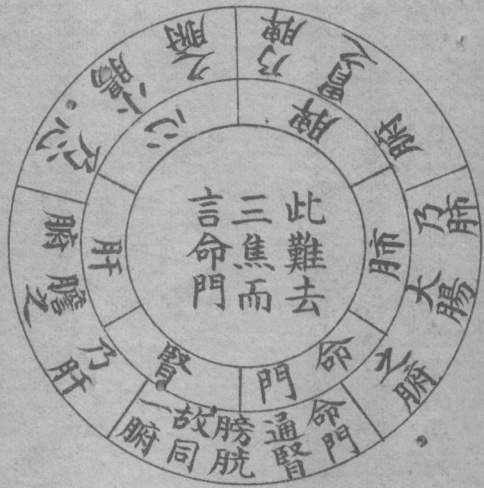 此難去
三焦而
言命門
心
脾
肺
命門
賢
肝
小腸乃心之腑
胃乃脾之腑
大腸乃肺之腑
命門通賢故膀胱同一腑
膽乃肝之腑